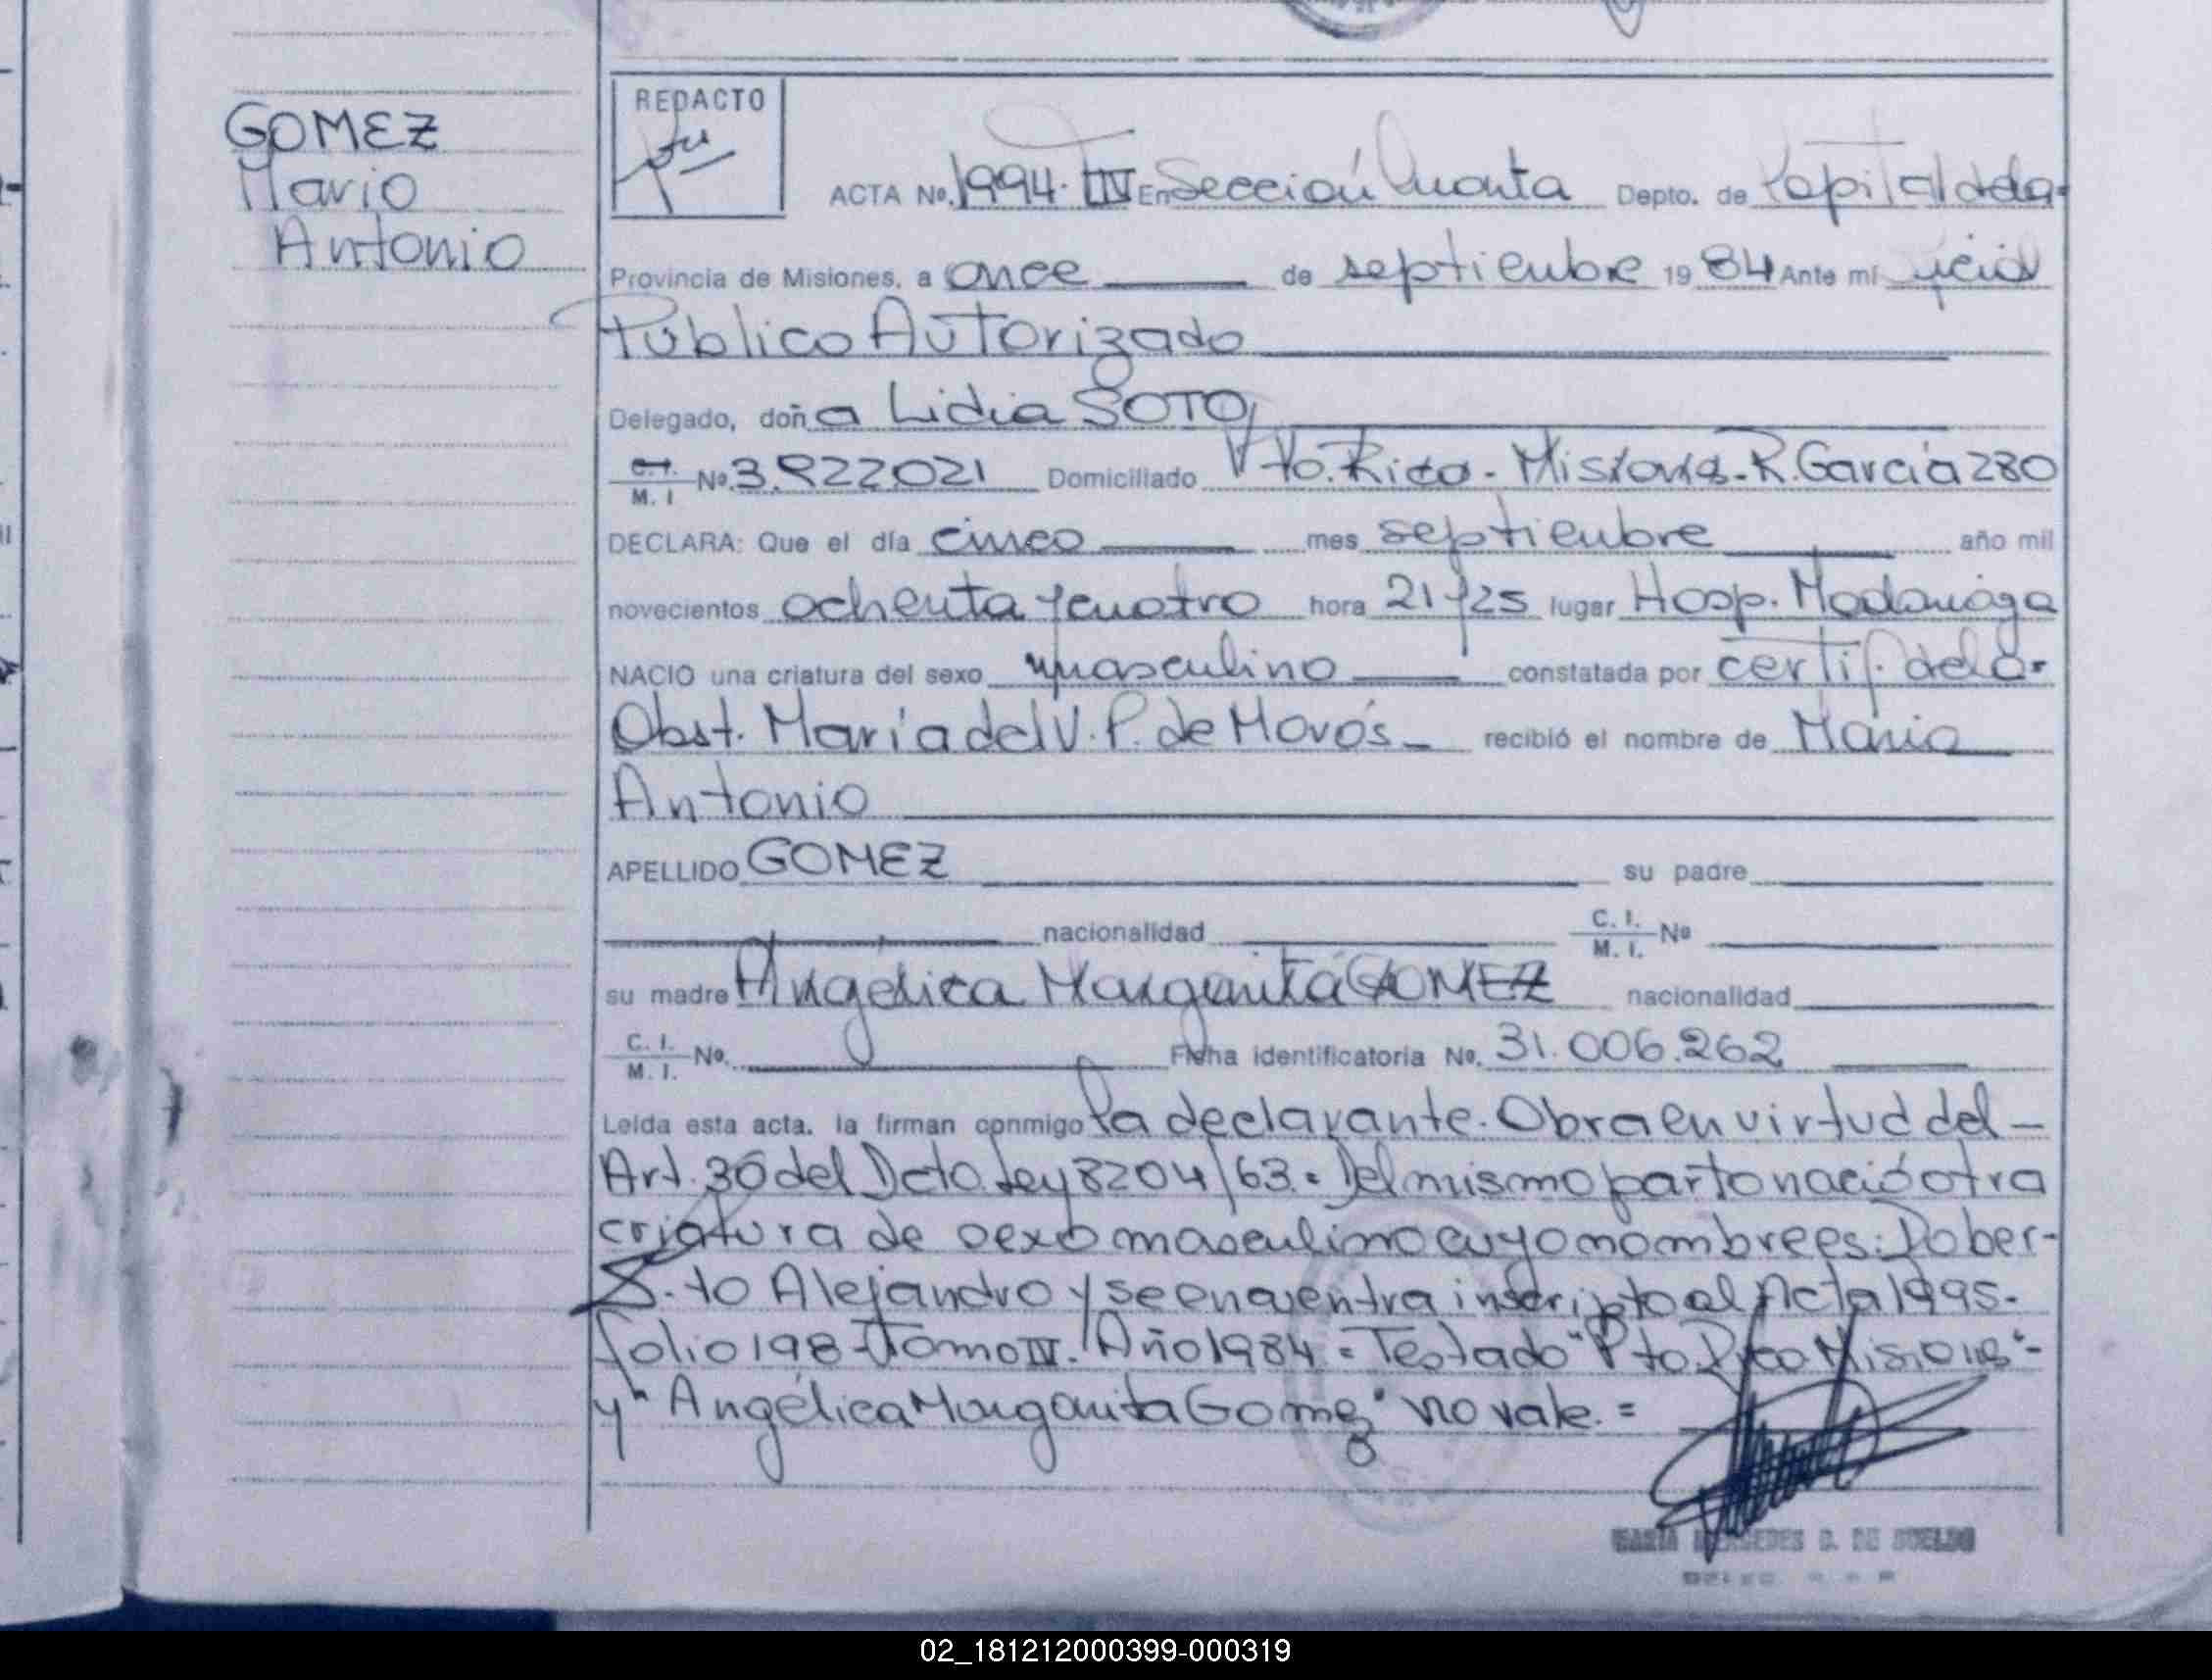 GOMEZ
Mario
Antonio
REDACTO
ACTA Nº. 1994. T IV En Sección Cuarta Depto. de Capital de la
Provincia de Misiones, a once de septiembre 1984 Ante mí
Público Autorizado
Delegado, doña Lidia SOTO,
C.I. M. I Nº. 3.822021 Domiciliado Pto. Rico - Misiones - R. García 280
DECLARA: Que el día cinco mes septiembre año mil
novecientos ochenta y cuatro hora 21 y 25 lugar Hosp. Madariaga
NACIO una criatura del sexo masculino constatada por certif. de la
Obst. María del V. P. de Movós recibió el nombre de Mario
Antonio
APELLIDO GOMEZ su padre
nacionalidad C. I. M. I. Nº
su madre Angélica Margarita GOMEZ nacionalidad
C. I. M. I. Nº. Ficha identificatoria Nº. 31.006.262
Leída esta acta. la firman conmigo la declarante. Obra en virtud del -
Art. 30 del Dcto. Ley 8204/63. = Del mismo parto nació otra
criatura de sexo masculino cuyo nombre es: Rober-
to Alejandro y se encuentra inscripto al Acta 1995.
folio 198 - Tomo IV. Año 1984 = Testado "Pto. Rico Misiones" -
y "Angélica Margarita Gomez" no vale. =
MARIA MERCEDES DE
02_181212000399-000319